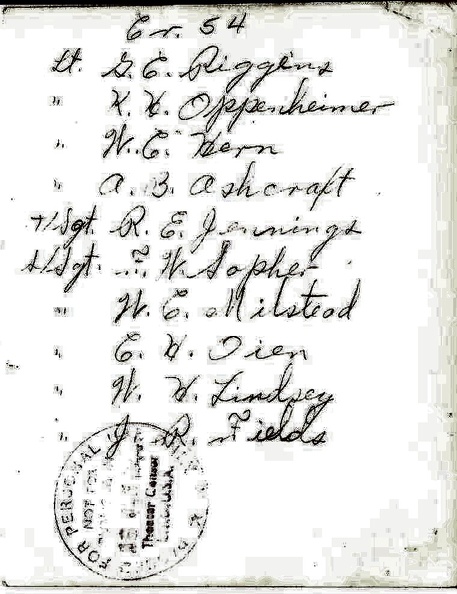 Cr. 54
Lt. G. E. Riggins
" K. H. Oppenheimer
" W. C. Hern
" A. B. Ashcraft
T/Sgt. R. E. Jennings
S/Sgt. F. W. Sopher
" W. E. Milstead
" E. H. Tien
" W. W. Lindsey
" J. R. Fields
FOR PERSONAL
NOT FOR
Theater Censor
U.S.A.